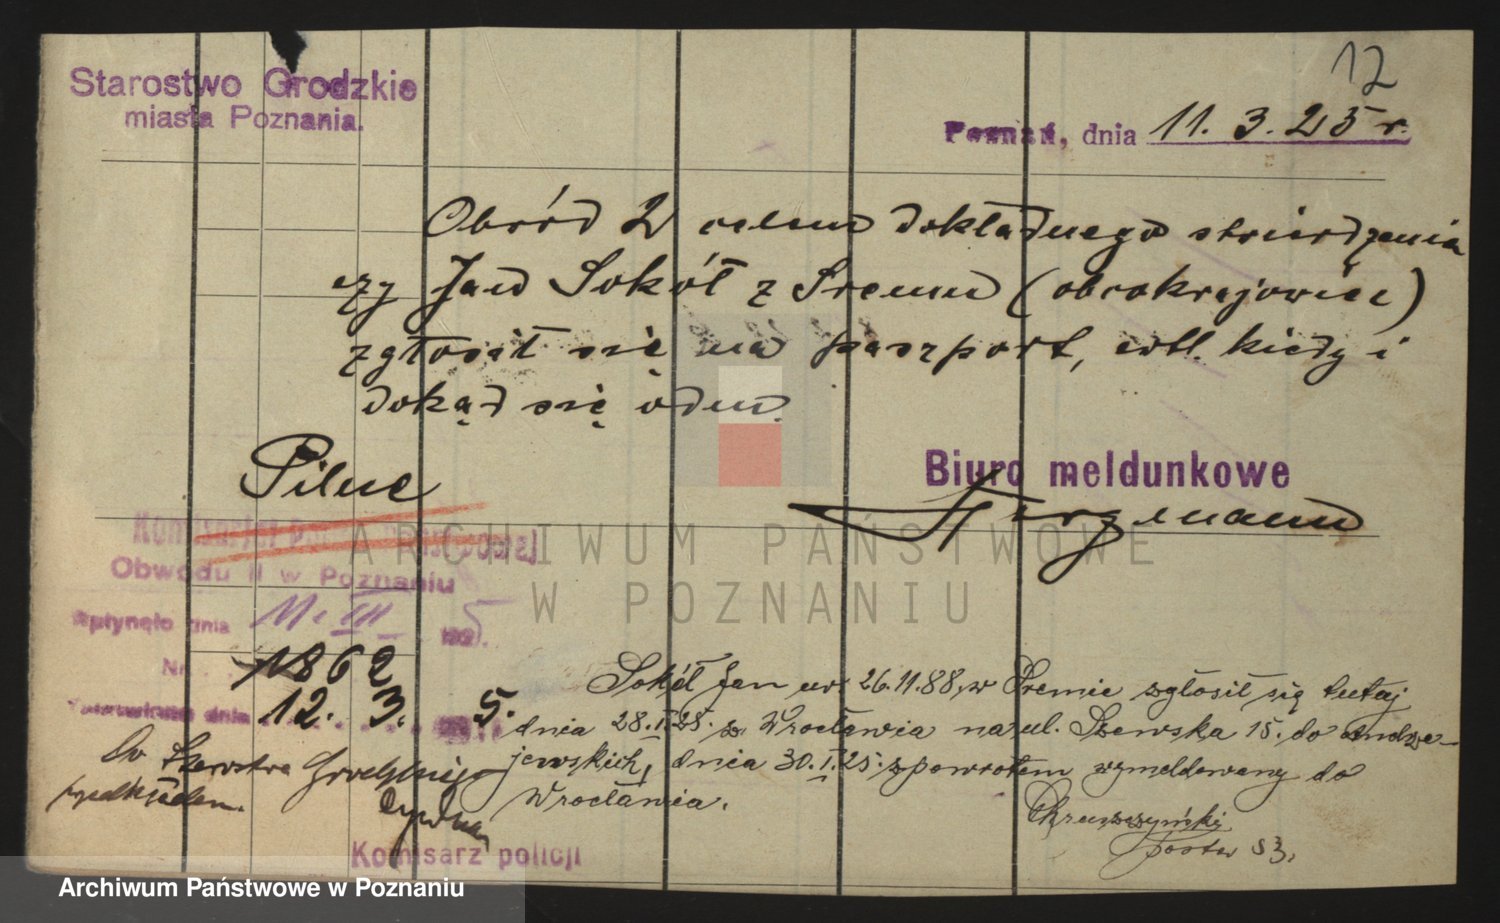 12
Starostwo Grodzkie
miasta Poznania.
Poznań, dnia 11. 3. 25 r.
Obwód 2 celem dokładnego stwierdzenia
czy Jan Sokół z Śremu (obcokrajowiec)
zgłosił się na paszport, wtl. kiedy i
dokąd się odm.
Pilne
Biuro meldunkowe
Komisarjat
Obwodu II w Poznaniu
Wpłynęło dnia 11. III 25.
Nr. 1862
dnia 12. 3. 5.
Do Starostwa Grodzkiego
przedkładam.
Komisarz policji
Sokół Jan ur 26.11.88, w Śremie zgłosił się tutaj
dnia 28.I.25. z Wrocławia na ul. Szewska 15. do Andrze-
jewskich, dnia 30.I.25. z powrotem wymeldowany do
Wrocławia.
post
ARCHIWUM PAŃSTWOWE
W POZNANIU
Archiwum Państwowe w Poznaniu